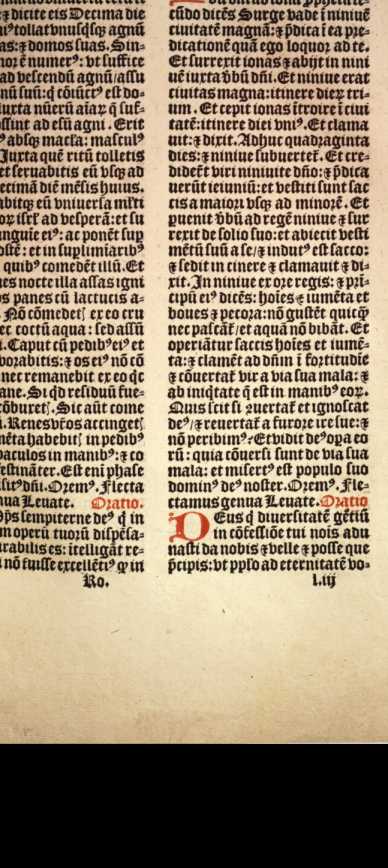 ⁊ dicite eis Decima die
niꝰ tollat vnusq̃sq̨ agnũ
as: ⁊ domos suas. Sin-
nor ẽ numerꝰ: vt suffice
ad vescendũ agnũ/assu
nũ suũ: q̃ cõiũctꝰ est do-
iuxta nũerũ aĩaꝝ q̃ suf-
ffint ad esũ agni. Erit
ꝰ absq̨ macla: masculꝰ
Juxta quẽ ritũ tolletis
et seruabitis eũ vsq̨ ad
ecimã diẽ mẽsis huius.
abitq̨ eũ vniuersa mĺti
oꝝ isrĺ ad vesperã: et su
inguĩe eiꝰ: ac ponẽt suꝑ
ostẽ: et in supliminaribꝰ
quibꝰ comedẽt illũ. Et
es nocte illa assas igni
s panes cũ lactucis a-
Nõ comedeť ex eo cru
ec coctũ aqua: sed assũ
i. Caput cũ pedibꝰ eiꝰ et
orabitis: ⁊ os eiꝰ nõ cõ
nec remanebit ex eo q̃c
ane. Si q̃d residuũ fue-
cõburet. Sic aũt come
. Renes vr̃os accinget
mẽta habebit in pedibꝰ
aculos in manibꝰ: ⁊ co
estinãter. Est eni phase
sitꝰ dñi. Oremꝰ. Flecta
nua Leuate. Oratio.
õp̃s sempiterne deꝰ q̃ in
m operũ tuorũ dispẽsa-
irabilis es: ĩtelligãt re-
i nõ fuisse excellẽtiꝰ ꝙ in
Ro.
cũdo dicẽs Surge vade ĩ niniuẽ
ciuitatẽ magnã: ⁊ p̃dica ĩ ea pre-
dicationẽ quã ego loquor ad te.
Et surrexit ionas ⁊ abijt in nini
uẽ iuxta ṽbũ dñi. Et niniue erat
ciuitas magna: itinere dieꝝ tri-
um. Et cepit ionas ĩtroire ĩ ciui
tatẽ: itinere diei vniꝰ. Et clama
uit: ⁊ dixit. Adhuc quadraginta
dies: ⁊ niniue subuerteť. Et cre-
didert viri niniuite dño: ⁊ p̃dica
uerũt ieiuniũ: et vestiti sunt sac
cis a maiori vsq̨ ad minorẽ. Et
ꝑuenit ṽbũ ad regẽ niniue ⁊ sur
rexit de solio suo: et abiecit vesti
mẽtũ suũ a se/⁊ indutꝰ est sacco:
⁊ sedit in cinere ⁊ clamauit ⁊ di-
xit. Jn niniue ex ore regis: ⁊ prĩ-
cipũ eiꝰ dicẽs: hoĩes ⁊ iumẽta et
boues ⁊ pecora: nõ gustẽt quicq̃
nec pascãt/et aquã nõ bibãt. Et
operiãtur saccis hoĩes et iumẽ-
ta: ⁊ clamẽt ad dñm ĩ fortitudĩe
⁊ cõuertať vir a via sua mala: ⁊
ab iniq̃tate q̃ est in manibꝰ eoꝝ.
Quis scit si ꝯuertať et ignoscat
deꝰ/⁊ reuertať a furore ire sue: ⁊
nõ peribimꝰ. Et vidit deꝰ opa eo
rũ: quia cõuersi sunt de via sua
mala: et misertꝰ est populo suo
dominꝰ deꝰ noster. Oremꝰ. Fle-
ctamus genua Leuate. Oratio
Deus q̃ diuersitatẽ gẽtiũ
in cõfessiõe tui noĩs adu
nasti da nobis ⁊ velle ⁊ posse que
p̃cipis: vt pplo ad eternitatẽ vo-
l.iij